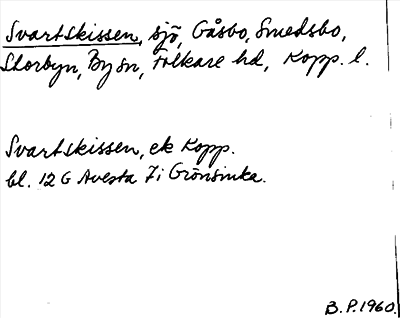 Svartskissen, sjö, Gåsbo, Smedsbo,
Storbyn, By sn, Folkare hd, Kopp. l.
Svartskissen, ek Kopp.
bl. 12 G Avesta 7i Grönsinka.
B.P. 1960.